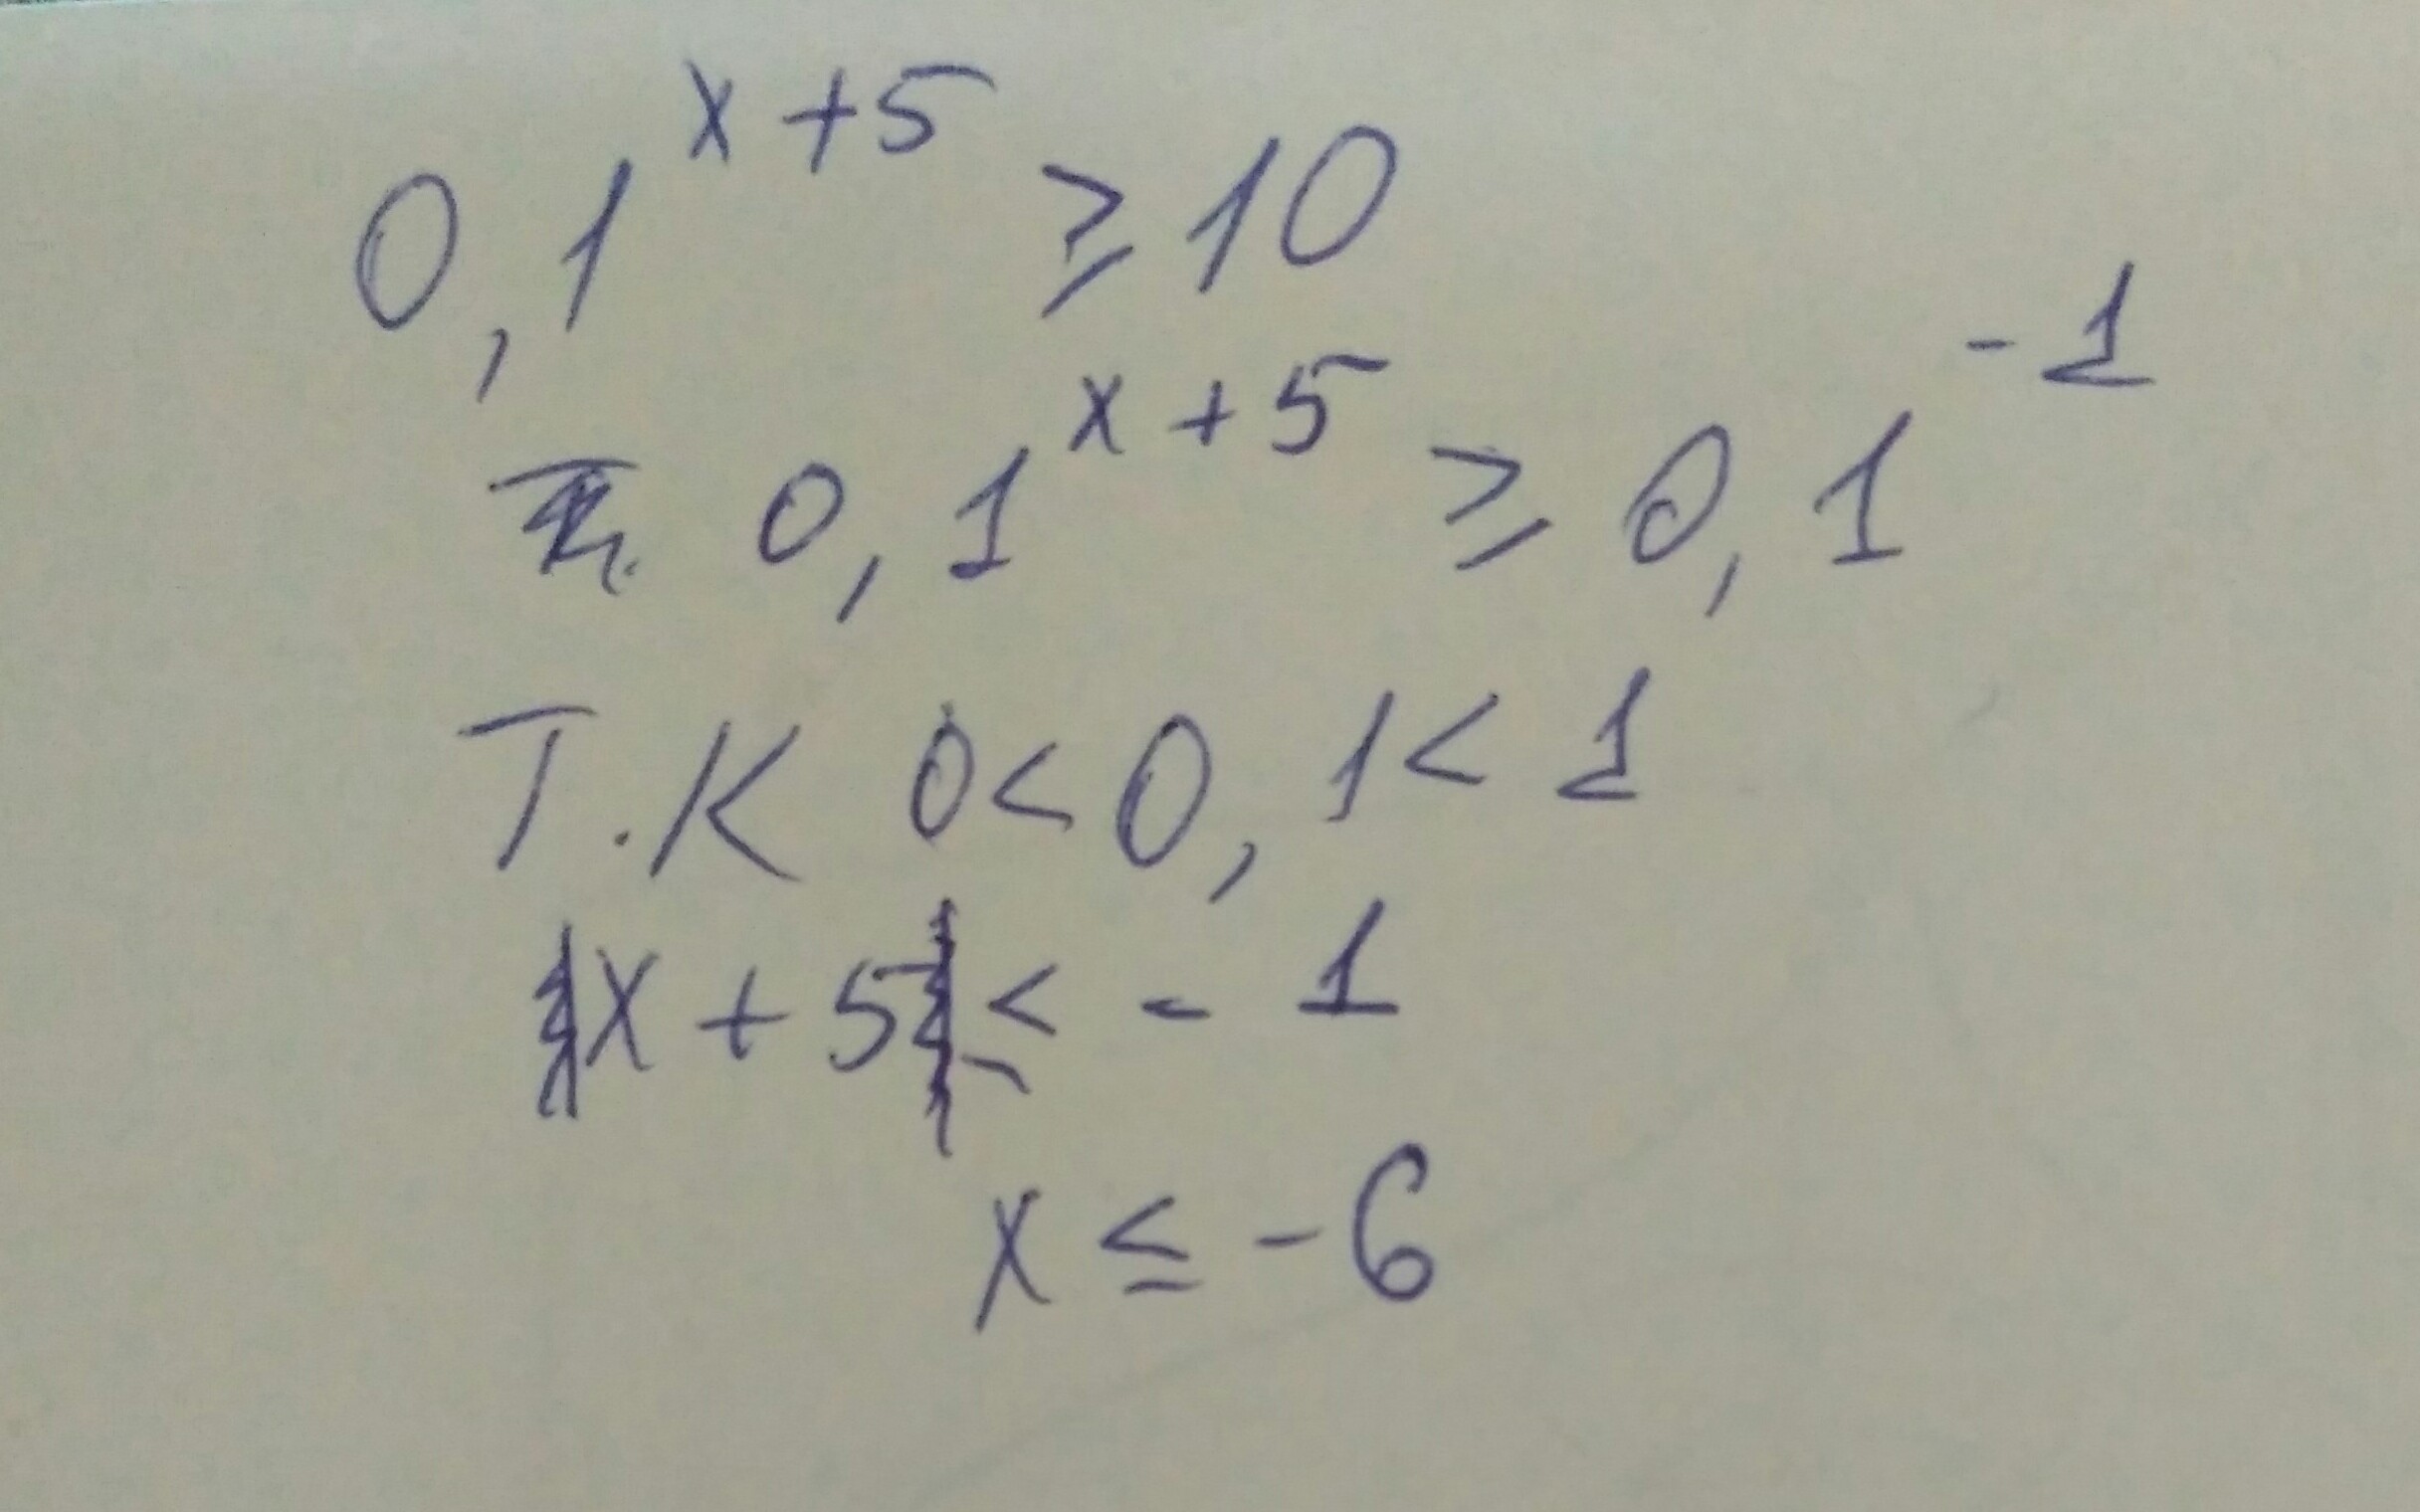 0,1^{x+5} ≥ 10
0,1^{x+5} ≥ 0,1^{-1}
Т.К 0 < 0,1 < 1
x + 5 ≤ - 1
x ≤ -6